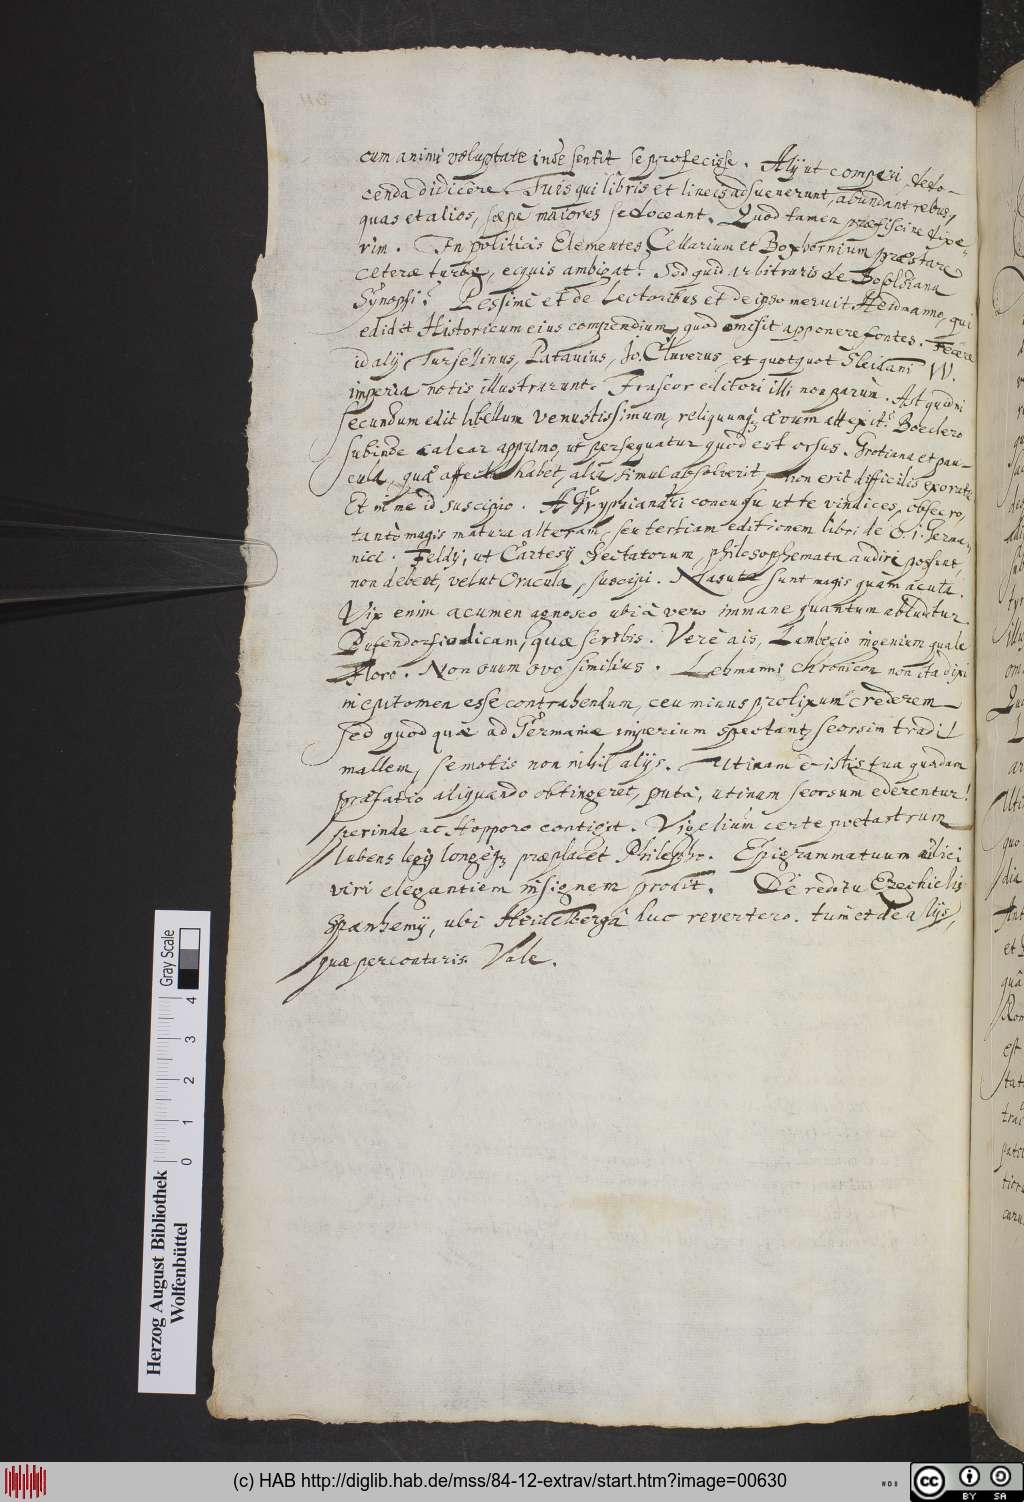 cum animi voluptate inde sentit se profecisse. Alij ut comperi, dedo-
cenda didicêre. Tuis qui libris et lineis adsueverunt, abundant rebus,
quas et alios, sæpe maiores se doceant. Quod tamen præfiscine dixe-
rim. In politicis Elementes Cellarium et Boxhornium præstare
ceteræ turbæ, ecquis ambigat? Sed quid arbitraris de Besoldiana
Synopsi? Pessimè et de Lectoribus et de ipso meruit Heidmanno, qui
edidit Historicum eius compendium, quod omisit apponere fontes. Fecêre
id alij Tursellinus, Patavius, Jo. Cluverus, et quotquot Sleidani IV.
imperia notis illustrarunt. Irascor editori illi non parùm. Ast quidni
secundum edit libellum venustissimum, reliquumq; ævum attexit? Boeclero
subinde calcar appulmo, ut persequatur quod est orsus. Grotiana et pau-
cula, quæ affecta habet, alia simul absolverit, non erit difficilis exoratu
Et in me id suscipio. A Gryphiandri concussu ut te vindices, obsecro,
tantò magis matura alteram, seu tertiam editionem libri de O. i. Germa-
nici. Feldij, ut Cartesij Sectatorum, philosophemata audiri possunt,
non debent, velut Oracula, suscipi. Nasuta sunt magis quam acuta.
Vix enim acumen agnosco ubi à vero immane quantum abludtur.
Pufendorfio dicam, quæ scribis. Verè ais, Lambecio ingenium quale
Floro. Non ovum ovo similius. Lehmanni Chronicon non ita dixi
in epitomen esse contrahendum, ceu minus prolixum crederem
sed quod quæ ad Germaniæ imperium spectant, seorsim tradi
mallem, semotis non nihil alijs. Utinam & istis tua quædam
præfatio aliquando obtingeret, puta, utinam seorsum ederentur!
perinde ac Hoppero contigit. Vigelium certe poetastrum
lubens legi longeq; præplacet Philelpho. Epigrammatuum
viri elegantiem insignem prodit. De reditu Ezechielis
Spanhemij, ubi Heidelbergâ huc revertero. tum et de alijs,
quæ percontaris. Vale.
Herzog August Bibliothek
Wolfenbüttel
0 1 2 3 4
Gray Scale
(c) HAB http://diglib.hab.de/mss/84-12-extrav/start.htm?image=00630
WDB
CC BY SA